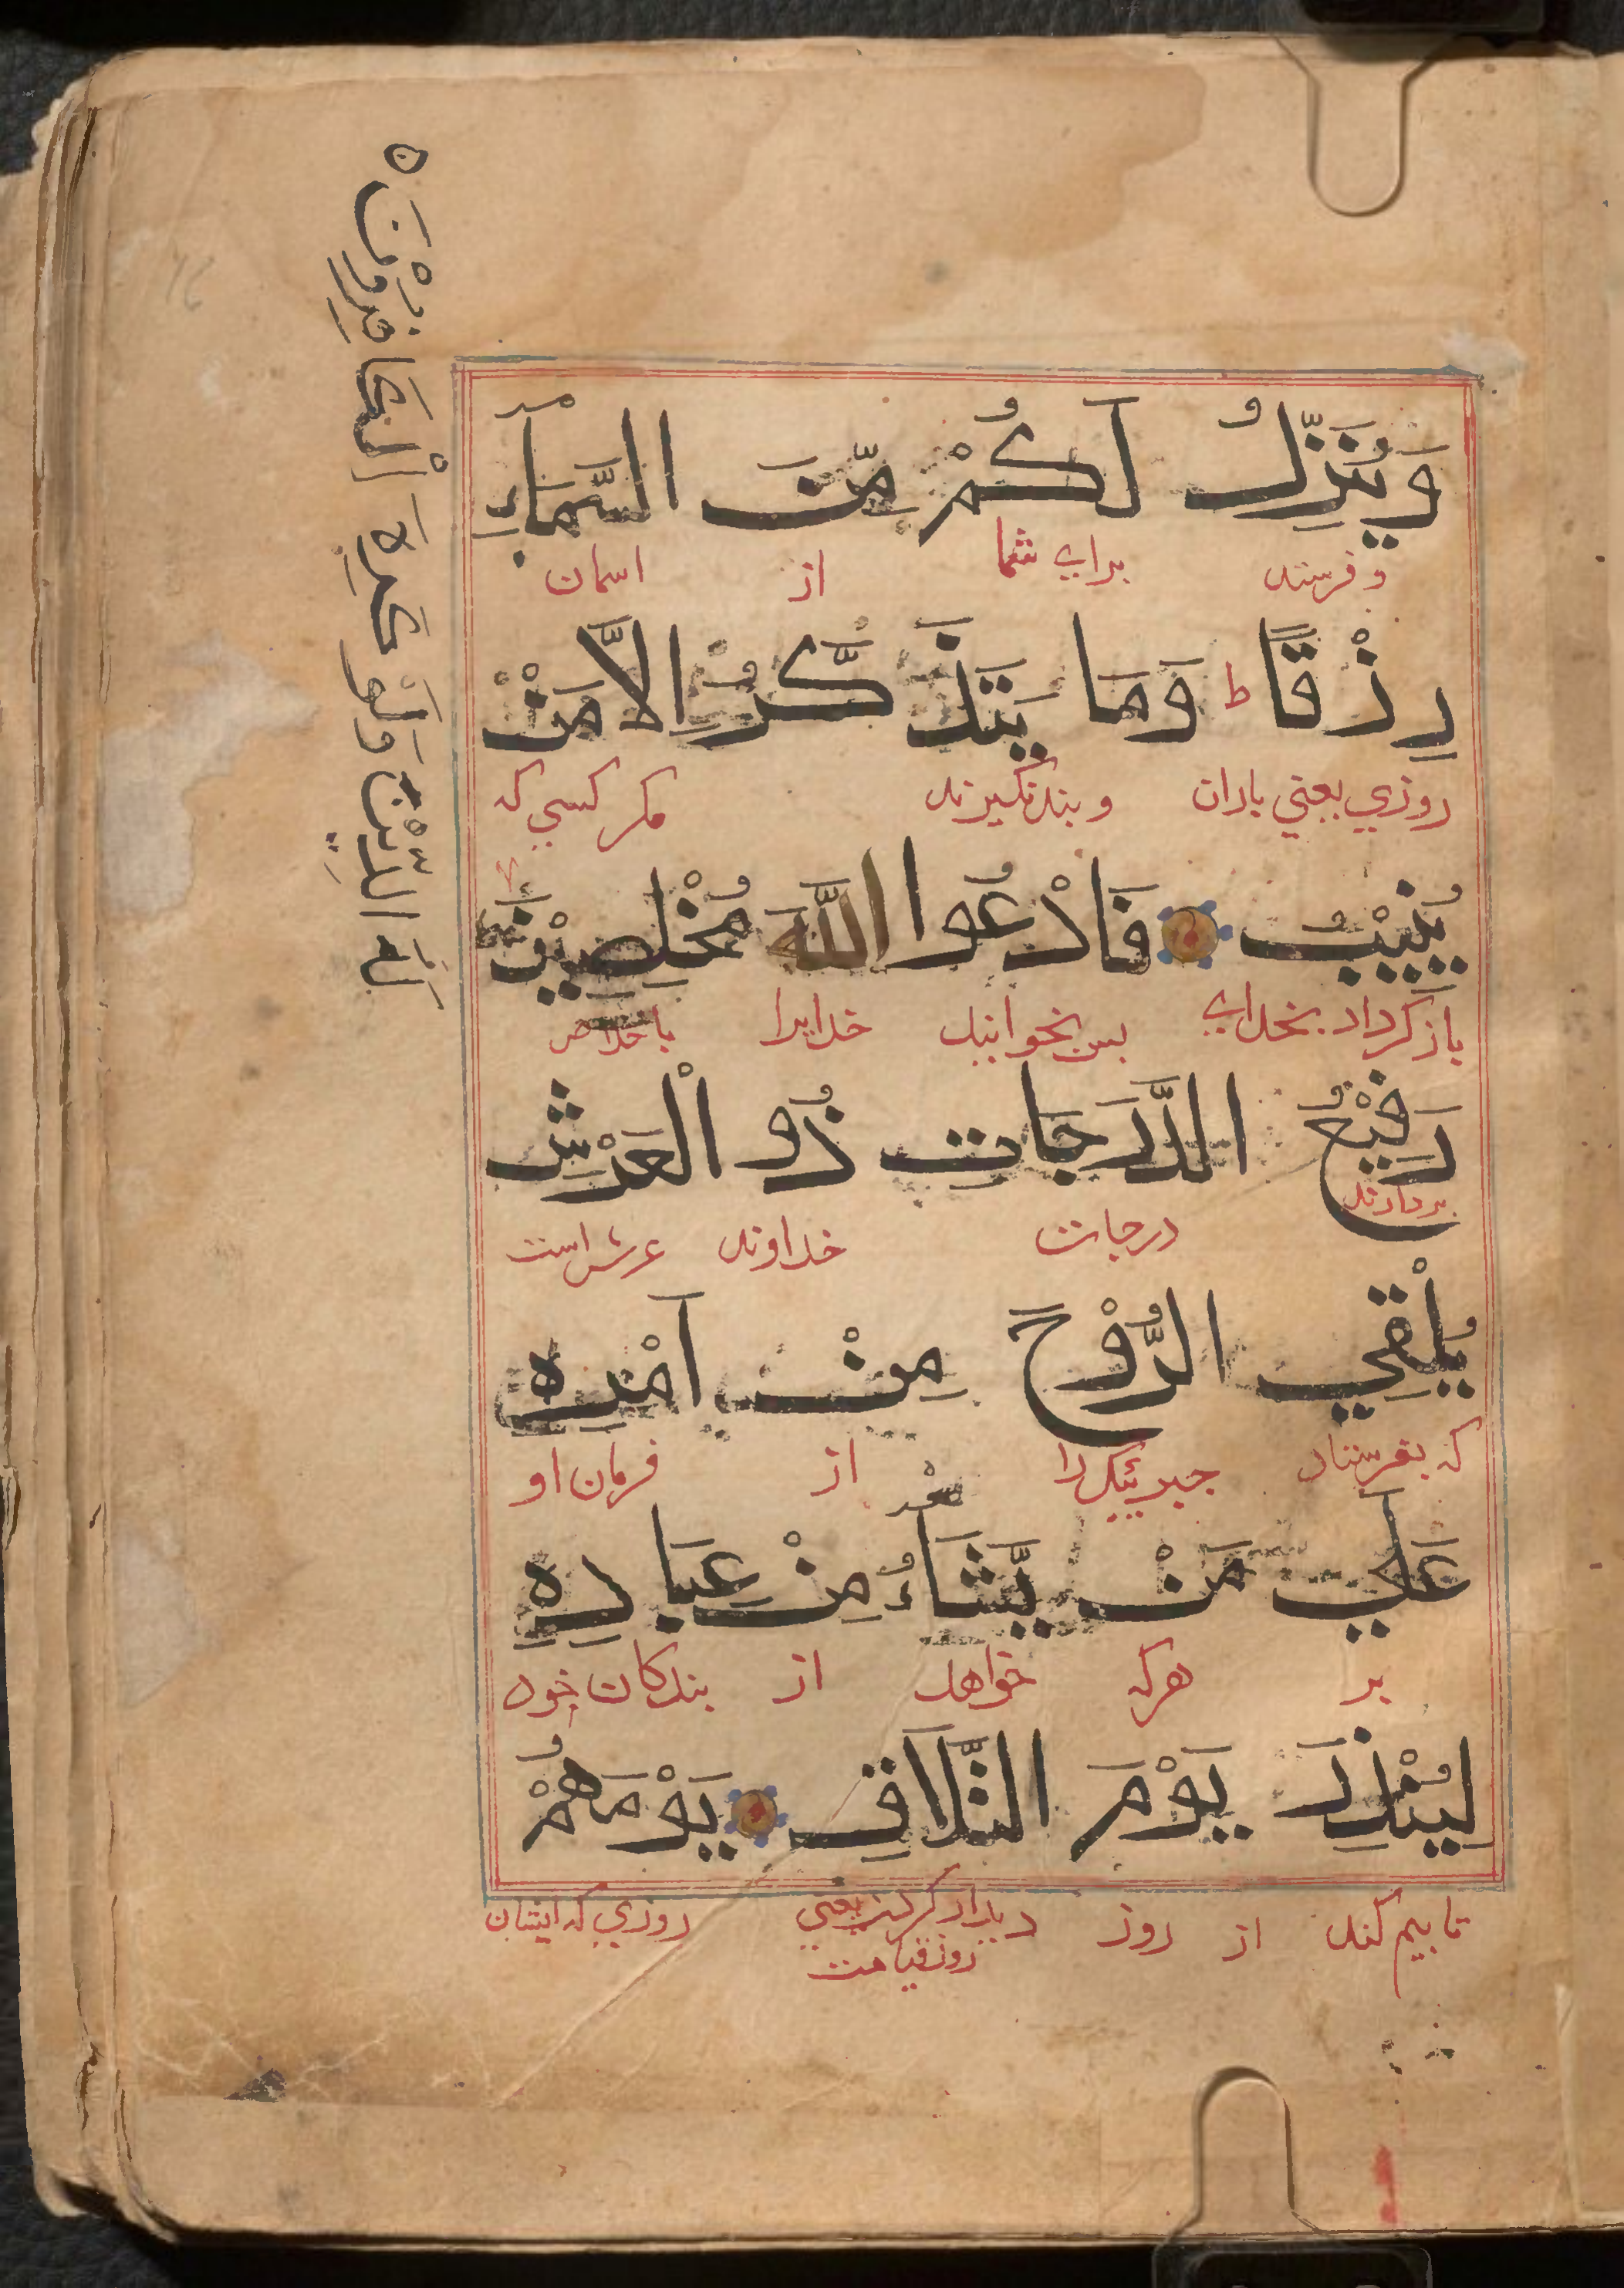 وَيُنَزِّلُ لَكُمْ مِّنَ السَّمَآءِ
و فرستد برای شما از اسمان
رِزْقًا ط وَمَا يَتَذَكَّرُ اِلَّا مَنْ
روزي يعني باران و پند نگيرند مكر كسي كه
يُنِيْبُ فَادْعُوا اللَّهَ مُخْلِصِيْنَ
باز كردد بخداي بس بخوانيد خدايرا باخلاص
رَفِيْعُ الدَّرَجَاتِ ذُو الْعَرْشِ
بردارنده درجات خداوند عرش است
يُلْقِي الرُّوْحَ مِنْ اَمْرِهِ
كه بفرستاد جبرئيل را از فرمان او
عَلَى مَنْ يَّشَآءُ مِنْ عِبَادِهِ
بر هركه خواهد از بندكان خود
لِيُنْذِرَ يَوْمَ التَّلَاقِ يَوْمَ هُمْ
تا بيم كند از روز ديدار كردن يعني روزي كه ايشان
روز قيامت
لَهُ الدِّيْنَ وَلَوْ كَرِهَ الْكَافِرُوْنَ ه